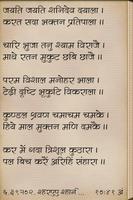 जयति जयति शनिदेव दयाला ।
करत सदा भक्तन प्रतिपाला ।।
चारि भुजा तनु श्याम विराजै ।
माथे रतन मुकुट छबि छाजै ।।
परम विशाल मनोहर भाला ।
टेढ़ी दृष्टि भृकुटि विकराला ।।
कुण्डल श्रवण चमाचम चमके ।
हिये माल मुक्तन मणि दमकै ।।
कर में गदा त्रिशूल कुठारा ।
पल बिच करैं अरिहिं संहारा ।।